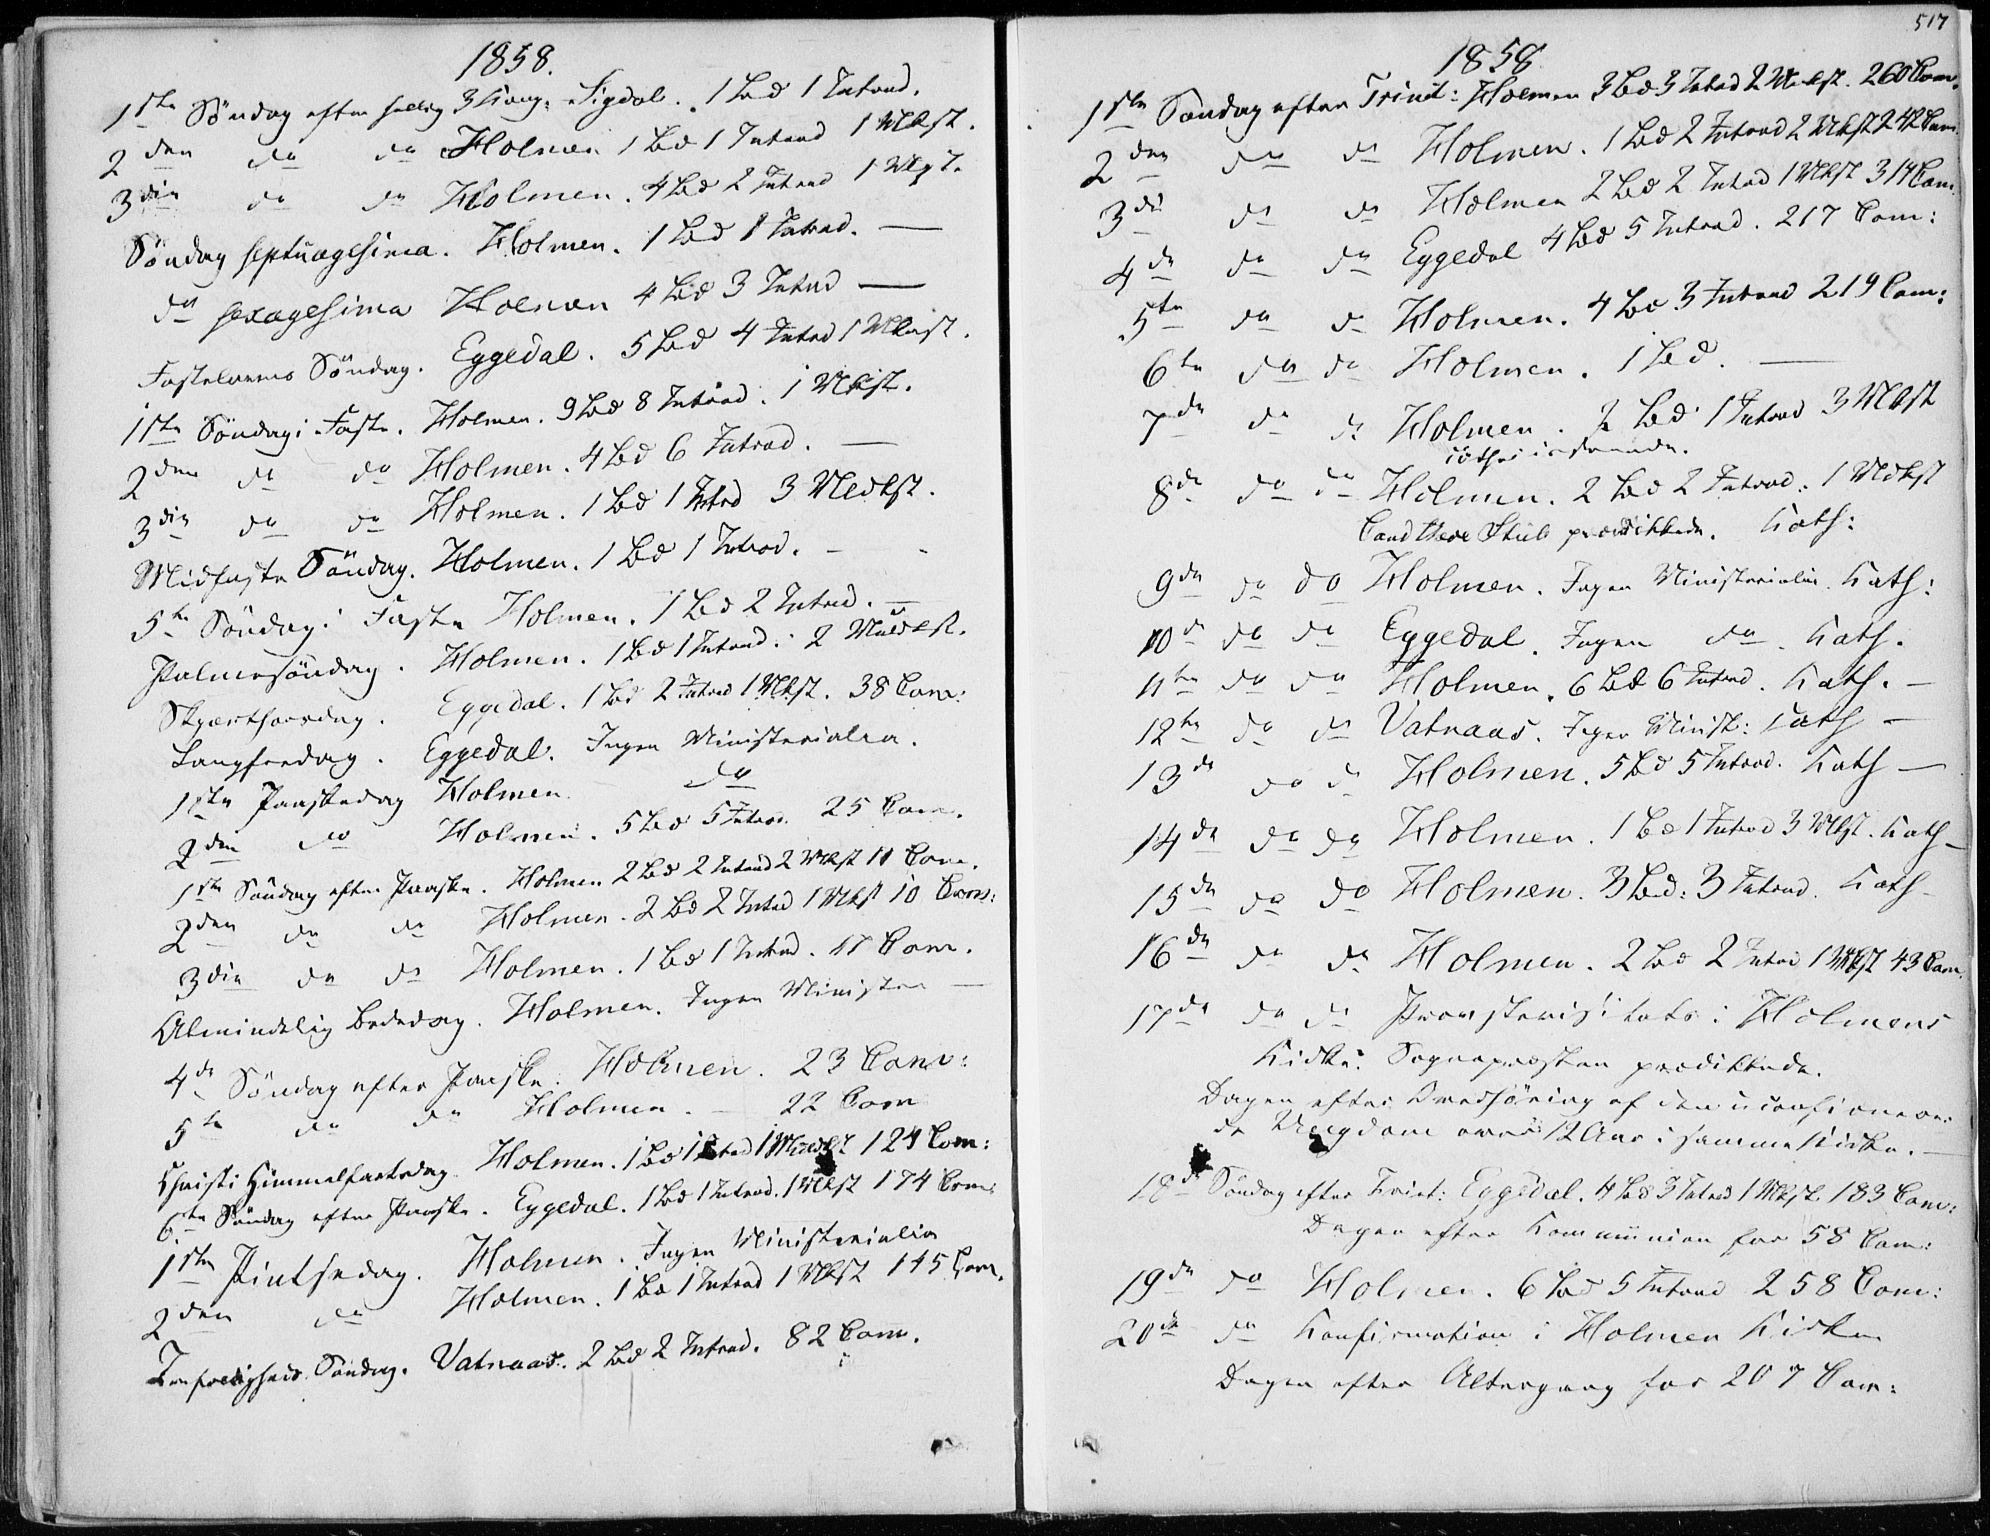 1858.
1ste Söndag efter hellig 3 Kong: Sigdal. 1 Bd 1 Introd.
2den do do Holmen 1 Bd 1 Introd 1 Vlkst.
3die do do Holmen. 4 Bd 2 Introd 1 Vlgt.
Söndag septuagesima. Holmen. 1 Bd 1 Introd. —
do sexagesima Holmen 4 Bd 3 Introd —
Fastelavns Söndag. Eggedal. 5 Bd 4 Introd 1 Vlkst.
1ste Söndag i Faste. Holmen. 9 Bd 8 Introd. 1 Vlkst.
2den do do Holmen. 4 Bd 6 Introd. —
3die do do Holmen. 1 Bd 1 Introd 3 Vledkst.
Midfaste Söndag. Holmen. 1 Bd 1 Introd. —
5te Söndag i Faste Holmen. 1 Bd 2 Introd. —
Palmesöndag. Holmen. 1 Bd 1 Introd: 2
Skjærthorsdag. Eggedal. 1 Bd 2 Introd 1 Vlkst. 38 Com:
Langfredag. Eggedal. Ingen Ministerialia.
1ste Paaskedag Holmen do
2den do Holmen. 5 Bd 5 Introd. 25 Com.
1ste Söndag efter Paaske. Holmen 2 Bd 2 Introd 2 Vlkst 11 Com.
2den do do Holmen. 2 Bd 2 Introd 1 Vlkst 10 Com:
3die do do Holmen. 1 Bd 1 Introd. 17 Com.
Almindelig Bededag. Holmen. Ingen Minister —
4de Söndag efter Paaske. Holmen. 23 Com:
5te do do Holmen. — 22 Com
Christi Himmelfartsdag. Holmen. 1 Bd 1 Introd 1 124 Com:
6te Söndag efter Paaske. Eggedal. 1 Bd 1 Introd. 1 Vlkst 174 Com:
1ste Pintsedag. Holmen. Ingen Ministerialia
2den do Holmen. 1 Bd 1 Introd 1 Vlkst 145 Com.
Trefoldigheds Söndag. Vatnaas. 2 Bd 2 Introd. 82 Com.
517
1858
1ste Söndag efter Trinit: Holmen 3 Bd 3 Introd 2 Vlkst. 260 Com.
2den do do Holmen. 1 Bd 2 Introd 2 Vlkst 242 Com.
3die do do Holmen 2 Bd 2 Introd 1 Vlkst 314 Com.
4de do do Eggedal 4 Bd 5 Introd. 217 Com:
5te do do Holmen. 4 Bd 3 Introd 219 Com:
6te do do Holmen. 1 Bd. —
7de do do Holmen. 2 Bd 1 Introd 3 Vlkst
8de do do Holmen. 2 Bd 2 Introd: 1 Vldkst
Cand theol Stub prædikkede. Kath:
9de do do Holmen. Ingen Ministerialia. Kath:
10de do do Eggedal. Ingen do. Kath.
11te do do Holmen. 6 Bd 6 Introd. Kath. —
12te do do Vatnaas. Ingen Minist: Kath —
13de do do Holmen. 5 Bd 5 Introd. Kath —
14de do do Holmen. 1 Bd 1 Introd 3 Vlkst. Kath —
15de do do Holmen. 3 Bd: 3 Introd. Kath —
16de do do Holmen. 2 Bd 2 Introd 1 Vlkst 43 Com.
17de do do Provstevisitats i Holmens
Kirke. Sognepræsten prædikkede.
Dagen efter Overhöring af den uconfirmere-
de Ungdom over 12 Aar i samme Kirke. —
18de Söndag efter Trinit: Eggedal. 4 Bd 3 Introd 1 Vlkst. 183 Com:
Dagen efter Kommunion for 58 Com:
19de do Holmen. 6 Bd 5 Introd 258 Com:
20de do Konfirmation i Holmen Kirke
Dagen efter Altergang for 207 Com: